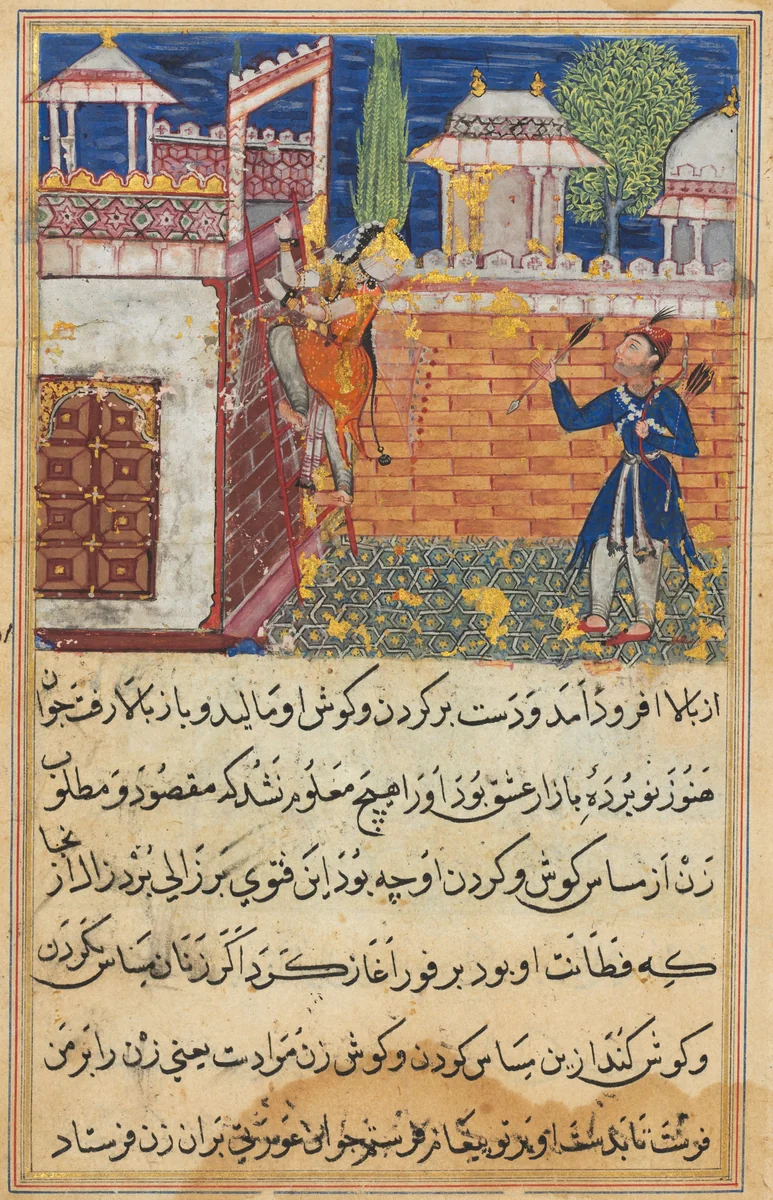 از بالا فرود آمد و دست بر کردن و کوش او مالید و باز بالا رفت جوان
هنوز نو بردهٔ بازار عشق بود او را هیچ معلوم نشد که مقصود و مطلوب
زن از مساس کوش و کردن او چه بود این فتوي بر زالي برد زال از انجا
که فطانت او بود بر فور آغاز کرد اگر زنان مساس بکردن
و کوش کنند ازین مساس کردن و کوش زن مرادست یعني زن را بر من
فرست تا بدست او بر تو پیغام فرستم جوان عورتي بران زن فرستاد